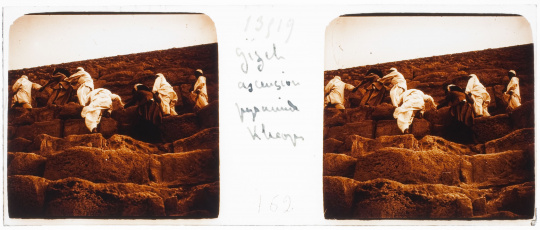 13519
gizeh
ascension
pyramide
Kheops
162